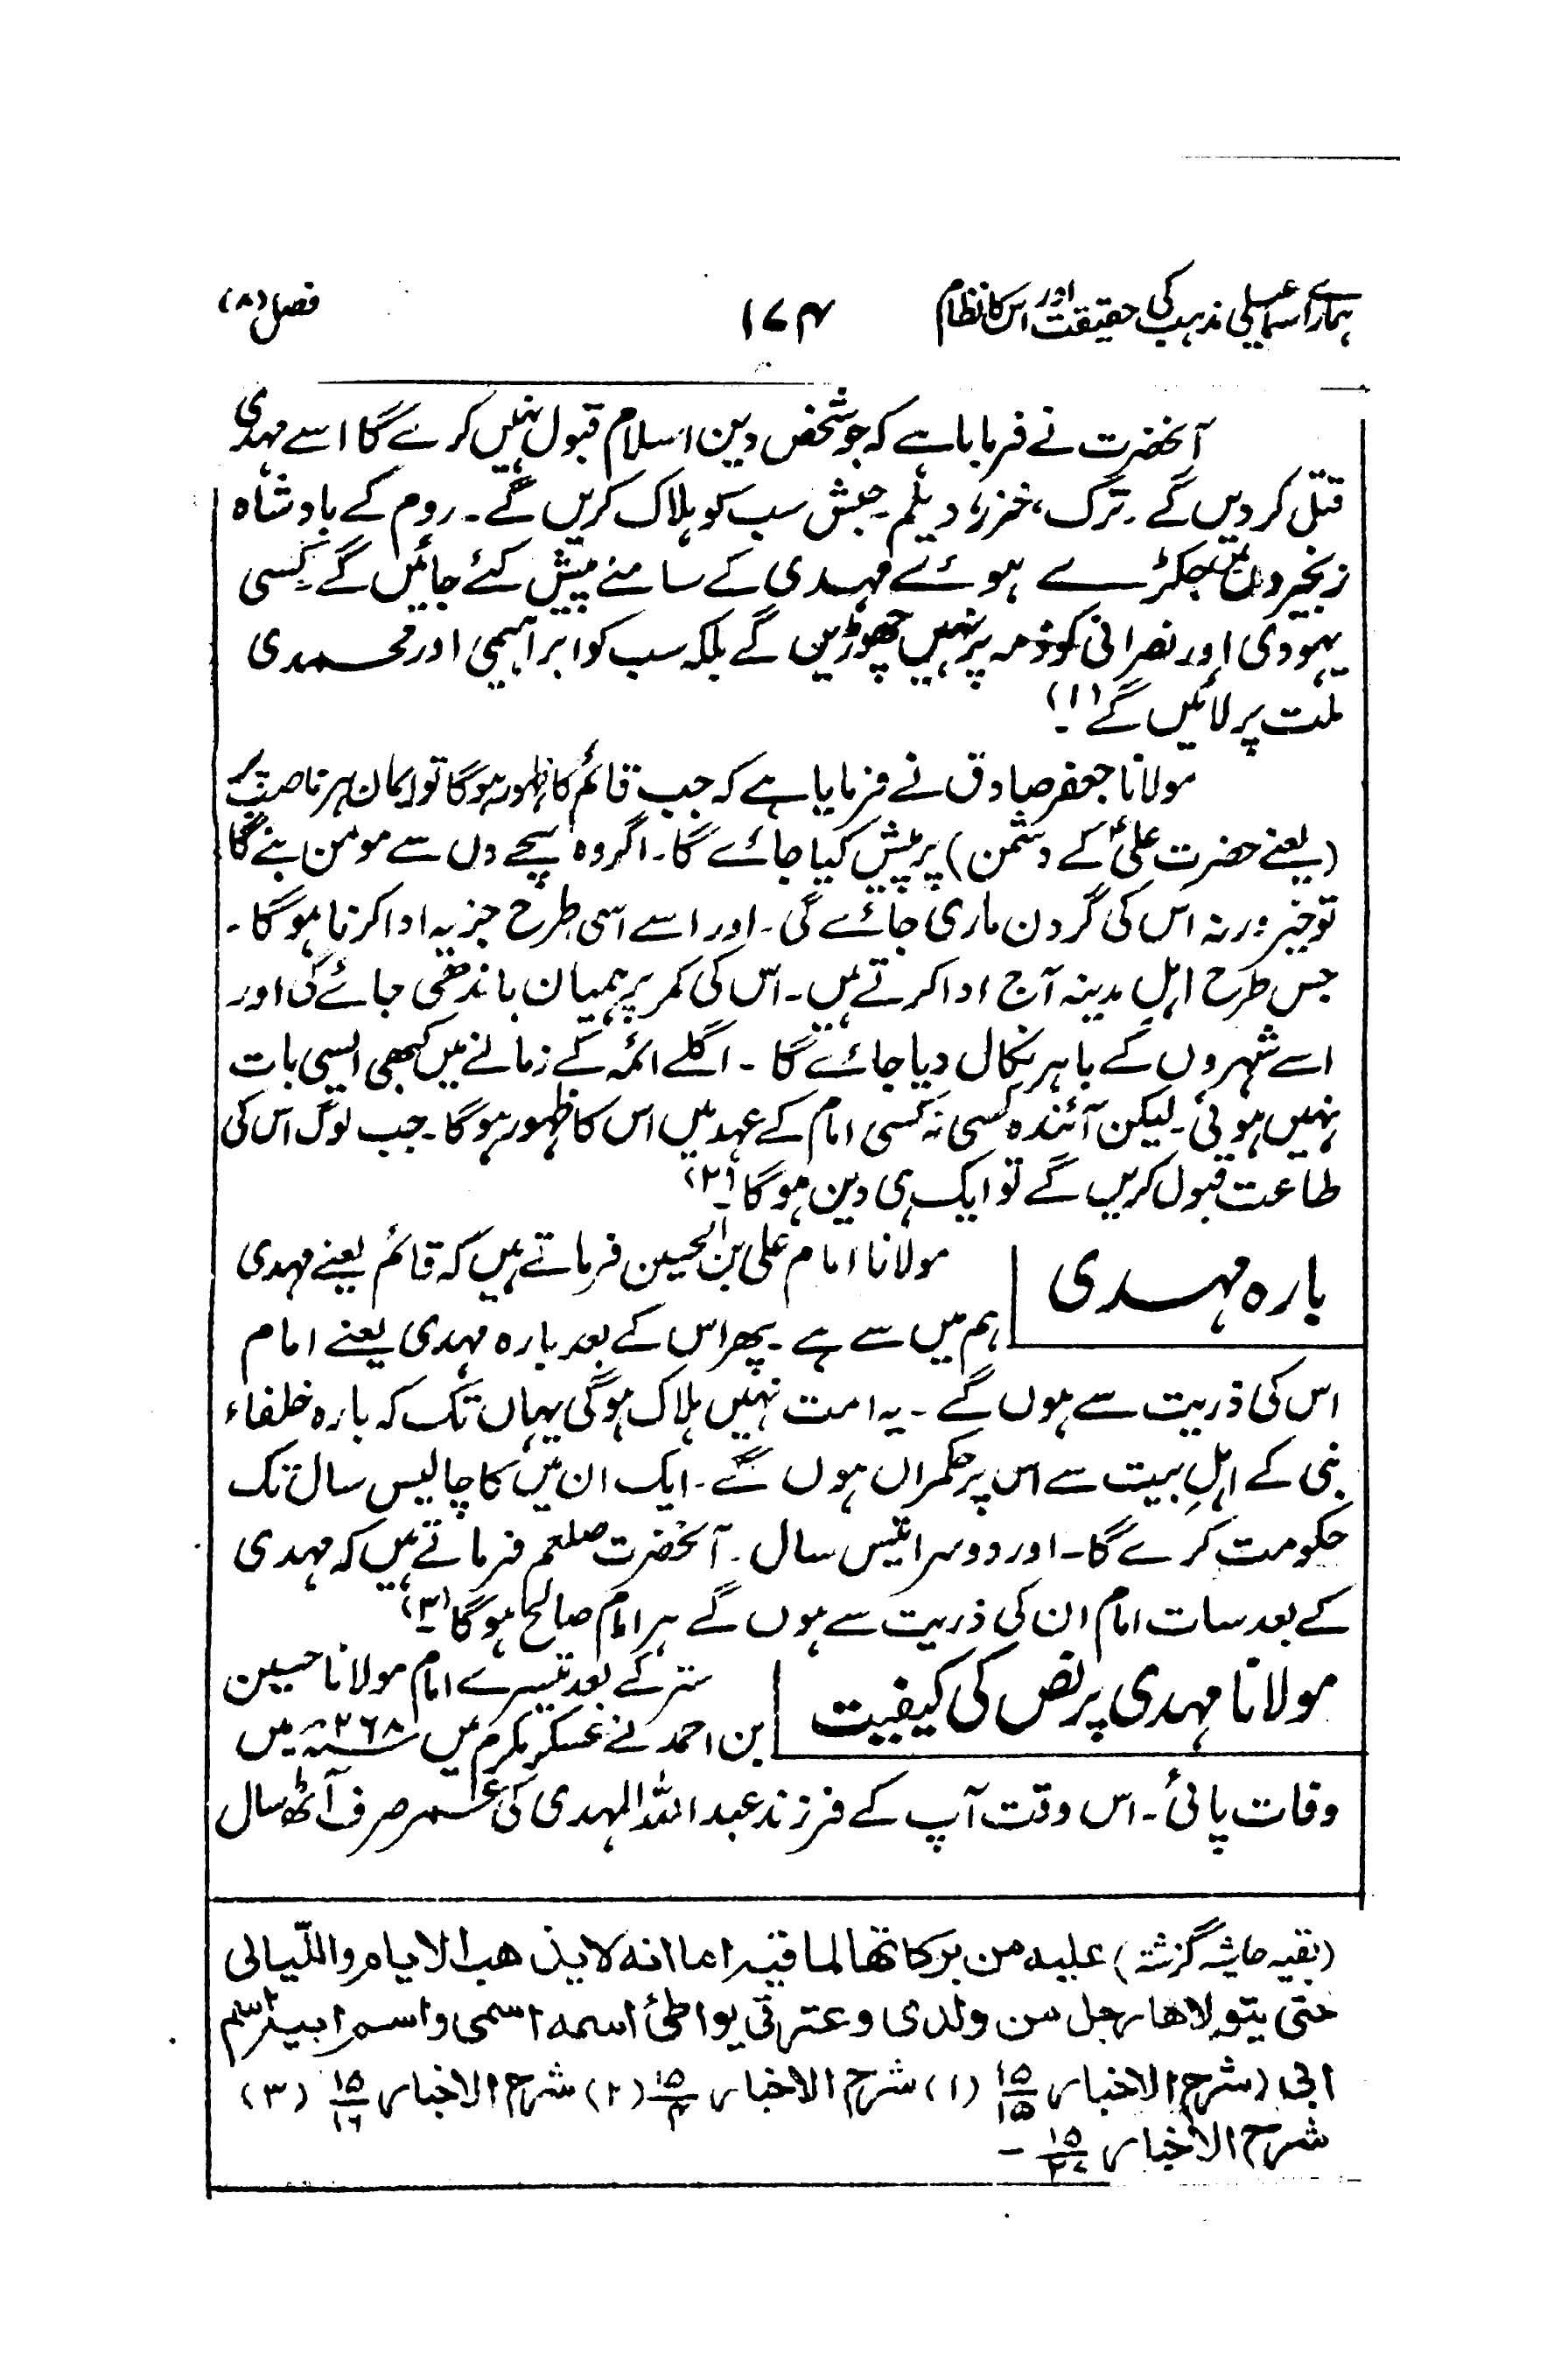 ہمارے اسماعیلی مذہب کی حقیقت اور اس کا نظام ۱۷۴ فصل (۸)
آنحضرت نے فرمایا ہے کہ جو شخص دین اسلام قبول نہیں کرے گا اسے مہدی
قتل کر دیں گے ۔ ترک ، خزر ، دیلم ۔ حبش سب کو ہلاک کریں گے ۔ روم کے بادشاہ
زنجیروں میں جکڑے ہوئے مہدی کے سامنے پیش کئے جائیں گے ۔ کسی
یہودی اور نصرانی کو ذمہ پر نہیں چھوڑیں گے بلکہ سب کو ابراہیمی اور محمدی
ملت پر لائیں گے (۱)۔
مولانا جعفر صادق نے فرمایا ہے کہ جب قائم کا ظہور ہوگا تو ایمان ہر ناصب پر
(یعنے حضرت علیؑ کے دشمن) پر پیش کیا جائے گا ۔ اگر وہ سچے دل سے مومن بنے گا
تو خیر ورنہ اس کی گردن ماری جائے گی ۔ اور اسے اسی طرح جزیہ ادا کرنا ہوگا ۔
جس طرح اہل مدینہ آج ادا کرتے ہیں ۔ اس کی کمر پر ہمیان باندھی جائے گی اور
اسے شہروں کے باہر نکال دیا جائے گا ۔ اگلے ائمہ کے زمانے میں کبھی ایسی بات
نہیں ہوئی ۔ لیکن آئندہ کسی نہ کسی امام کے عہد میں اس کا ظہور ہوگا ۔ جب لوگ اس کی
طاعت قبول کریں گے تو ایک ہی دین ہوگا (۲)۔
بارہ مہدی
مولانا امام علی بن الحسین فرماتے ہیں کہ قائم یعنے مہدی
ہم میں سے ہے ۔ پھر اس کے بعد بارہ مہدی یعنے امام
اس کی ذریت سے ہوں گے ۔ یہ امت نہیں ہلاک ہوگی یہاں تک کہ بارہ خلفاء
نبی کے اہلِ بیت سے اس پر حکمراں ہوں گے ۔ ایک ان میں کا چالیس سال تک
حکومت کرے گا ۔ اور دوسرا تیس سال ۔ آنحضرت صلعم فرماتے ہیں کہ مہدی
کے بعد سات امام ان کی ذریت سے ہوں گے ہر امام صالح ہوگا (۳)۔
مولانا مہدی پر نص کی کیفیت
ستر کے بعد تیسرے امام مولانا حسین
بن احمد نے عسکر مکرم میں ۲۶۸ھ میں
وفات پائی ۔ اس وقت آپ کے فرزند عبد اللہ المہدی کی عمر صرف آٹھ سال
(بقیہ حاشیہ گزشتہ) علیہ من برکاتھا لما فیہ اما انہ لا یذھب الایام واللّیالی
حتی یتولاھا رجل من ولدی وعترتی یواطئ اسمہ اسمی واسم ابیہ اسم
ابی (شرح الاخبار ۱۵/۱۵ (۱) شرح الاخبار ۱۵/۴ (۲) شرح الاخبار ۱۵/۱۶ (۳)
شرح الاخبار ۱۵/ ۔